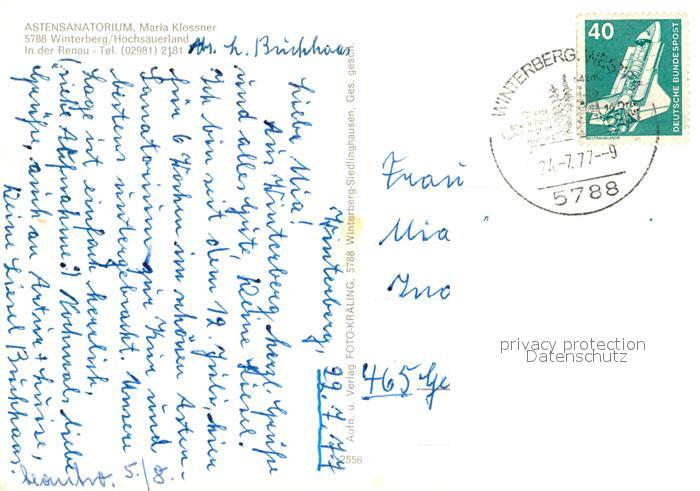 ASTENSANATORIUM, Maria Klossner
5788 Winterberg/Hochsauerland
In der Renau - Tel. (02981) 2181
Abs. L. Brückhaus
Winterberg, 22.7.77
Liebe Mia!
Aus Winterberg herzl. Grüße
und alles Gute, Deine Liesel.
Ich bin seit dem 12. Juli, hier
für 6 Wochen im schönen Asten-
sanatorium zur Kur und
bestens untergebracht. Unsere
Lage ist einfach herrlich,
(siehe Aufnahme!) Nochmals, liebe
Grüße, auch an Artur + Luise,
Deine Liesel Brückhaus.
5./8.
Aufn. u. Verlag FOTO-KRALING, 5788 Winterberg-Siedlinghausen, Ges. gesch.
2556
40
DEUTSCHE BUNDESPOST
WELTRAUMLABOR
WINTERBERG, WESTF
24.-7.77--9
5788
Frau
Mia
Ing
465 Ge
privacy protection
Datenschutz